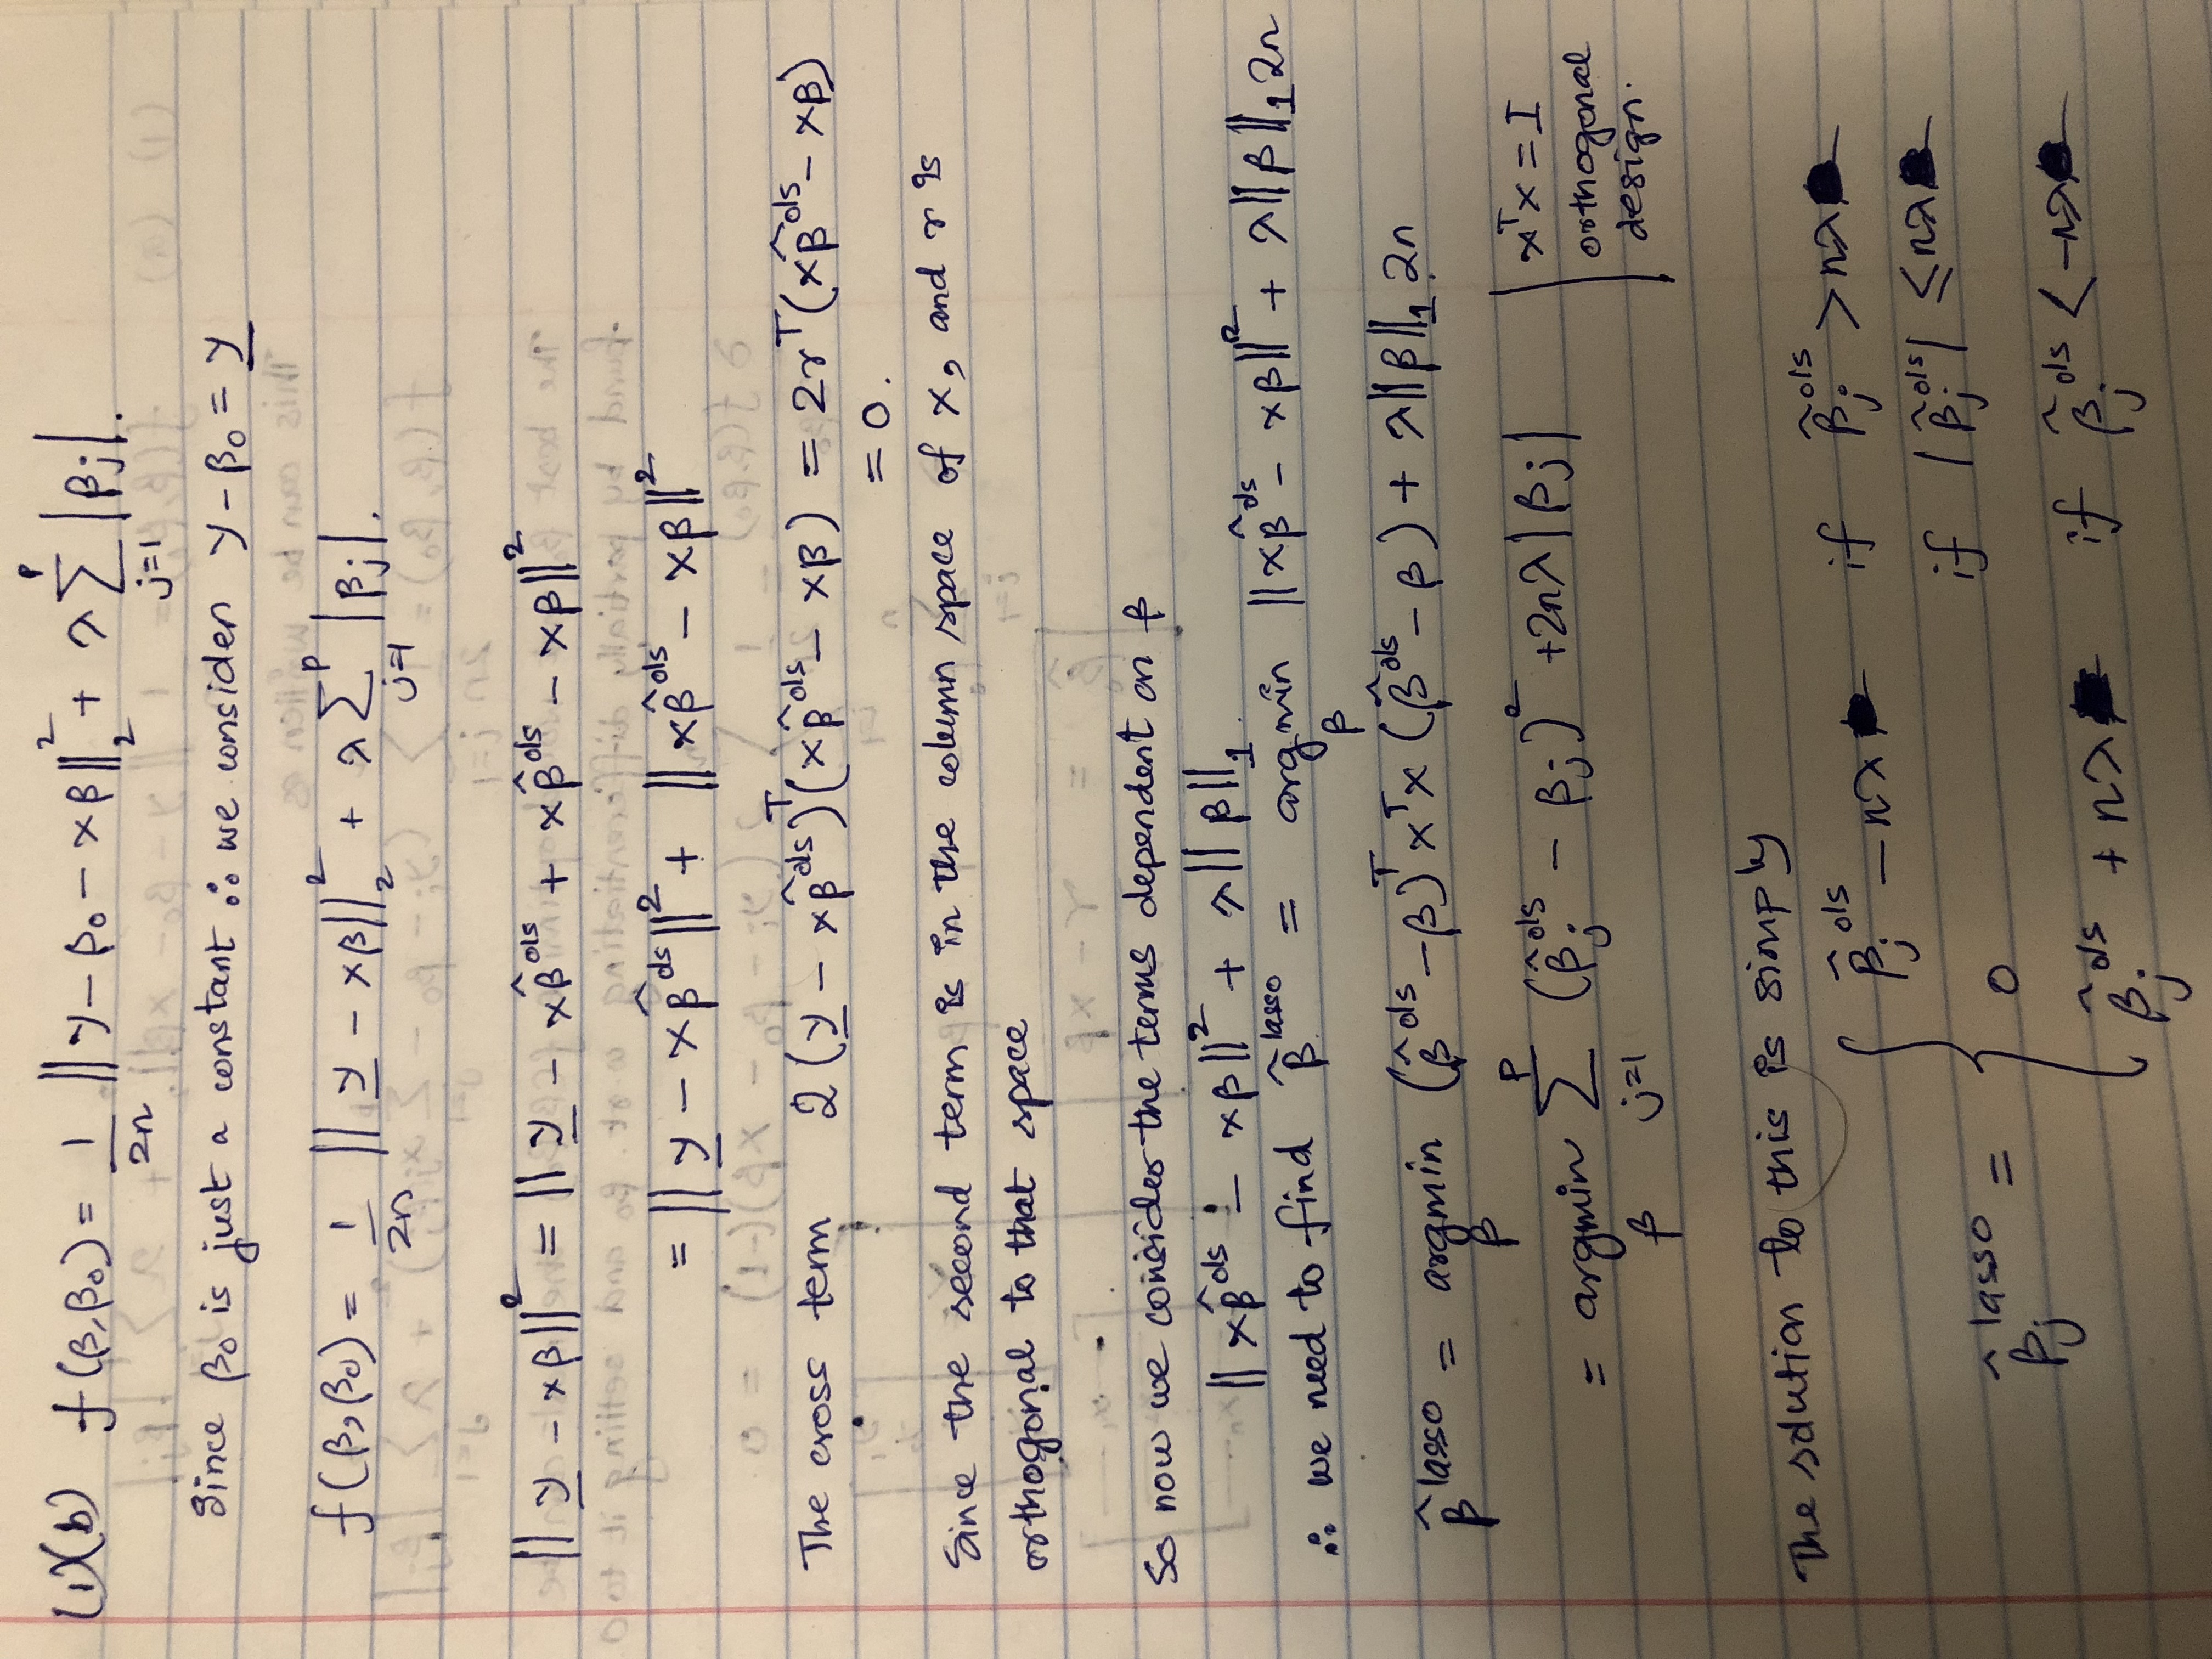 (1)(b) f(β,β₀) = 1/2n ||y - β₀ - xβ||₂² + λ Σ_{j=1}^{p} |βj|.
Since β₀ is just a constant ∴ we consider y - β₀ = y̲
f(β,β₀) = 1/2n ||y̲ - xβ||₂² + λ Σ_{j=1}^{p} |βj|.
||y̲ - xβ||² = ||y̲ - xβ̂^ols + xβ̂^ols - xβ||²
= ||y̲ - xβ̂^ols||² + ||xβ̂^ols - xβ||²
The cross term 2(y̲ - xβ̂^ols)^T(xβ̂^ols - xβ) = 2r^T(xβ̂^ols - xβ)
= 0.
Since the second term is in the column space of x, and r is
orthogonal to that space
So now we consider the terms dependent on β
||xβ̂^ols - xβ||² + λ||β||₁
∴ we need to find β̂^lasso = argmin_β ||xβ̂^ols - xβ||² + λ||β||₁ 2n
β̂^lasso = argmin_β (β̂^ols - β)^T x^T x (β̂^ols - β) + λ||β||₁ 2n
= argmin_β Σ_{j=1}^{p} (β̂j^ols - βj)² + 2nλ|βj|
x^T x = I
orthogonal
design.
The solution to this is simply
β̂j^lasso = { β̂j^ols - nλ if β̂j^ols > nλ
0 if |β̂j^ols| ≤ nλ
β̂j^ols + nλ if β̂j^ols < -nλ